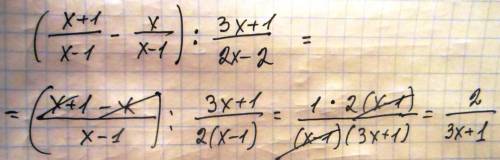 (x+1/x-1 - x/x-1) : 3x+1/2x-2 =
= (x+1-x/x-1) : 3x+1/2(x-1) = 1·2(x-1)/(x-1)(3x+1) = 2/3x+1